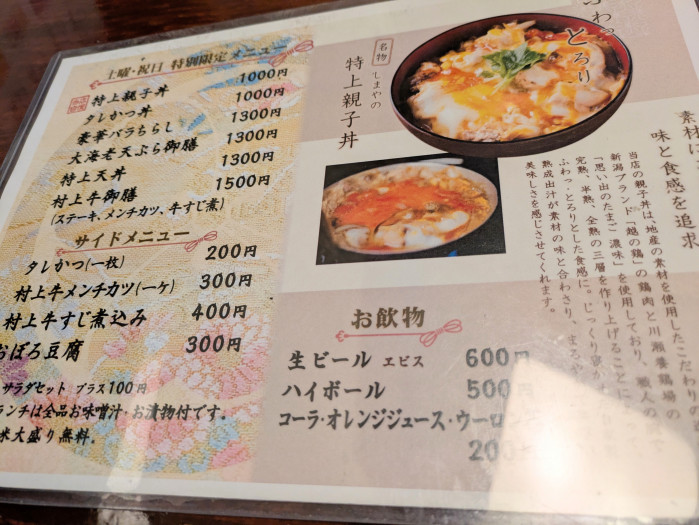 土曜・祝日 特別限定メニュー
特上親子丼 1000円
タレかつ丼 1000円
豪華バラちらし 1300円
大海老天ぷら御膳 1300円
特上天丼 1300円
村上牛御膳 1500円
(ステーキ、メンチカツ、牛すじ煮)
サイドメニュー
タレかつ(一枚) 200円
村上牛メンチカツ(一ケ) 300円
村上牛すじ煮込み 400円
おぼろ豆腐 300円
サラダセット プラス100円
ランチは全品お味噌汁・お漬物付です。
米大盛り無料。
ふわっ
とろり
名物
しまやの
特上親子丼
素材に
味と食感を追求
当店の親子丼は、地産の素材を使用したこだわり
新潟ブランド「越の鶏」の鶏肉と川瀬養鶏場の
「思い出のたまご 濃味」を使用しており、職人の
完熟、半熟、全熟の三層を作り上げることに
ふわっ・とろりとした食感に。じっくり寝か
熟成出汁が素材の味と合わさり、まろや
美味しさを感じさせてくれます。
お飲物
生ビール ヱビス 600円
ハイボール 500円
コーラ・オレンジジュース・ウーロン
200